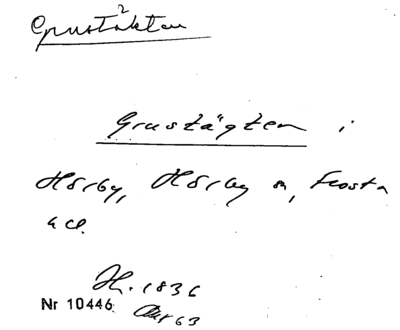 Grustäkten
2
Grustägten i
Hörby, Hörby sn, Frosta
hd.
H. 1836
Nr 10446
Akt 63